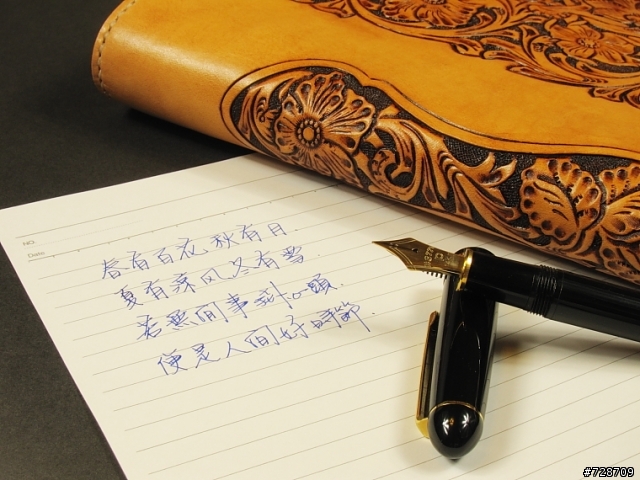 NO.
Date
春有百花.秋有月.
夏有涼风.冬有雪.
若無闲事掛心頭.
便是人间好時節.
#728709